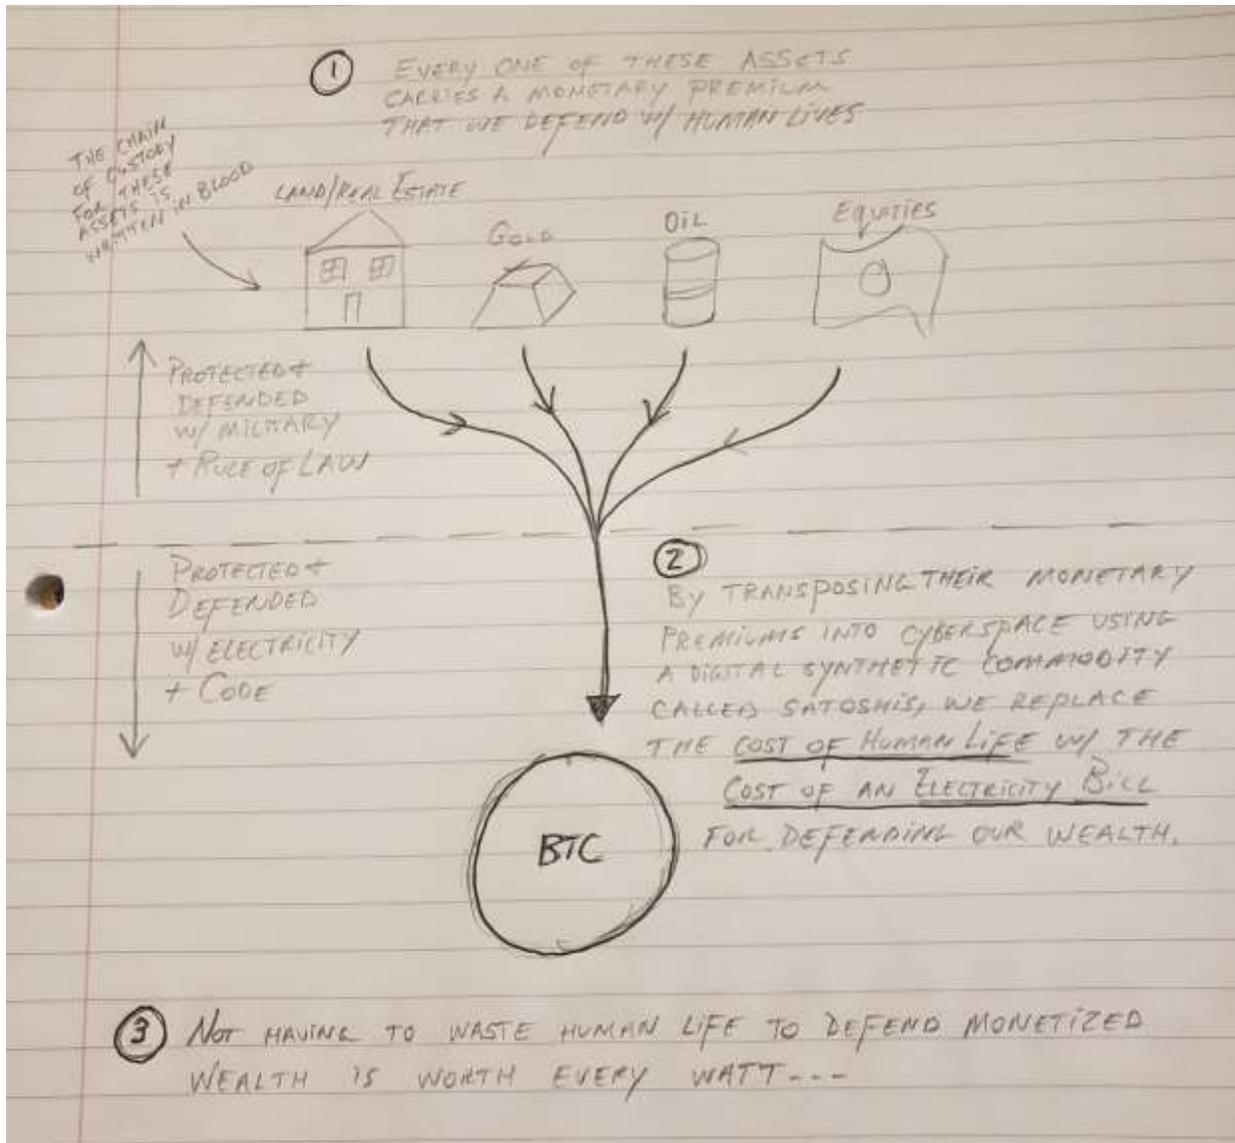 1 EVERY ONE OF THESE ASSETS
CARRIES A MONETARY PREMIUM
THAT WE DEFEND W/ HUMAN LIVES
THE CHAIN
OF CUSTODY
FOR THESE
ASSETS IS
WRITTEN IN BLOOD
LAND/REAL ESTATE
GOLD
OIL
Equities
PROTECTED +
DEFENDED
W/ MILITARY
+ RULE OF LAW
PROTECTED +
DEFENDED
W/ ELECTRICITY
+ CODE
2
BY TRANSPOSING THEIR MONETARY
PREMIUMS INTO CYBERSPACE USING
A DIGITAL SYNTHETIC COMMODITY
CALLED SATOSHIS, WE REPLACE
THE COST OF HUMAN LIFE W/ THE
COST OF AN ELECTRICITY BILL
FOR DEFENDING OUR WEALTH.
BTC
3 NOT HAVING TO WASTE HUMAN LIFE TO DEFEND MONETIZED
WEALTH IS WORTH EVERY WATT---